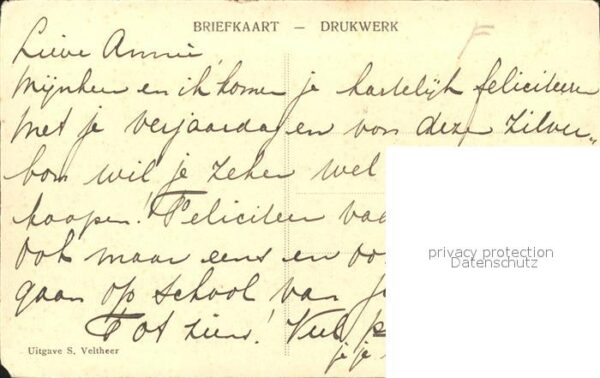 BRIEFKAART — DRUKWERK
Lieve Annie,
Mijnheer en ik komen je hartelijk feliciteeren
met je verjaardag en voor dezen zilver„
bon wil je zeker wel
koopen! Feliciteer
Ook maar eens en
gaan op school van
Tot ziens! Veel
je je
Uitgave S. Veltheer
privacy protection
Datenschutz